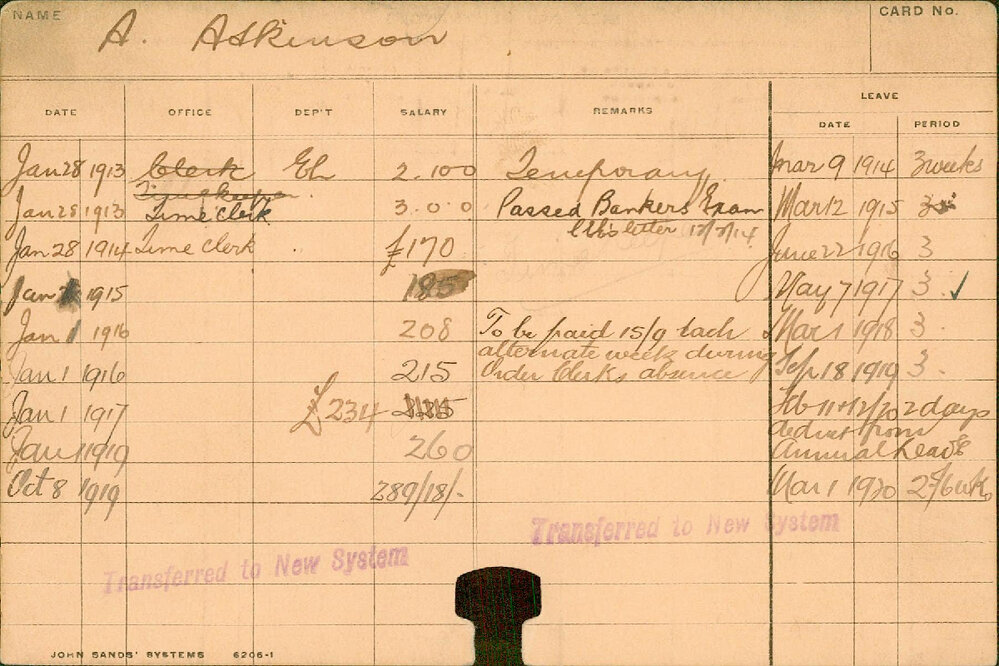 NAME A. Atkinson CARD No.
LEAVE
DATE OFFICE DEP'T SALARY REMARKS DATE PERIOD
Jan 28 1913 Clerk EL 2.10 0 Temporary Mar 9 1914 3 weeks
Jan 28 1913 Time clerk 3.0.0 Passed Bankers Exam Mar 12 1915
letter 13/3/14
Jan 28 1914 Time clerk " £170 June 22 1916 3
Jan 1 1915 185 May 7 1917 3 ✓
Jan 1 1916 208 To be paid 15/9 each Mar 1 1918 3
alternate week during
Jan 1 1916 215 Order Clerks absence Sep 18 1919 3
Jan 1 1917 £234 Feb 11+12/20 2 days
deduct from
Jan 1 1919 260 Annual Leave
Oct 8 1919 289/18/- Mar 1 1920
Transferred to New System
Transferred to New System
JOHN SANDS' SYSTEMS 6206-1